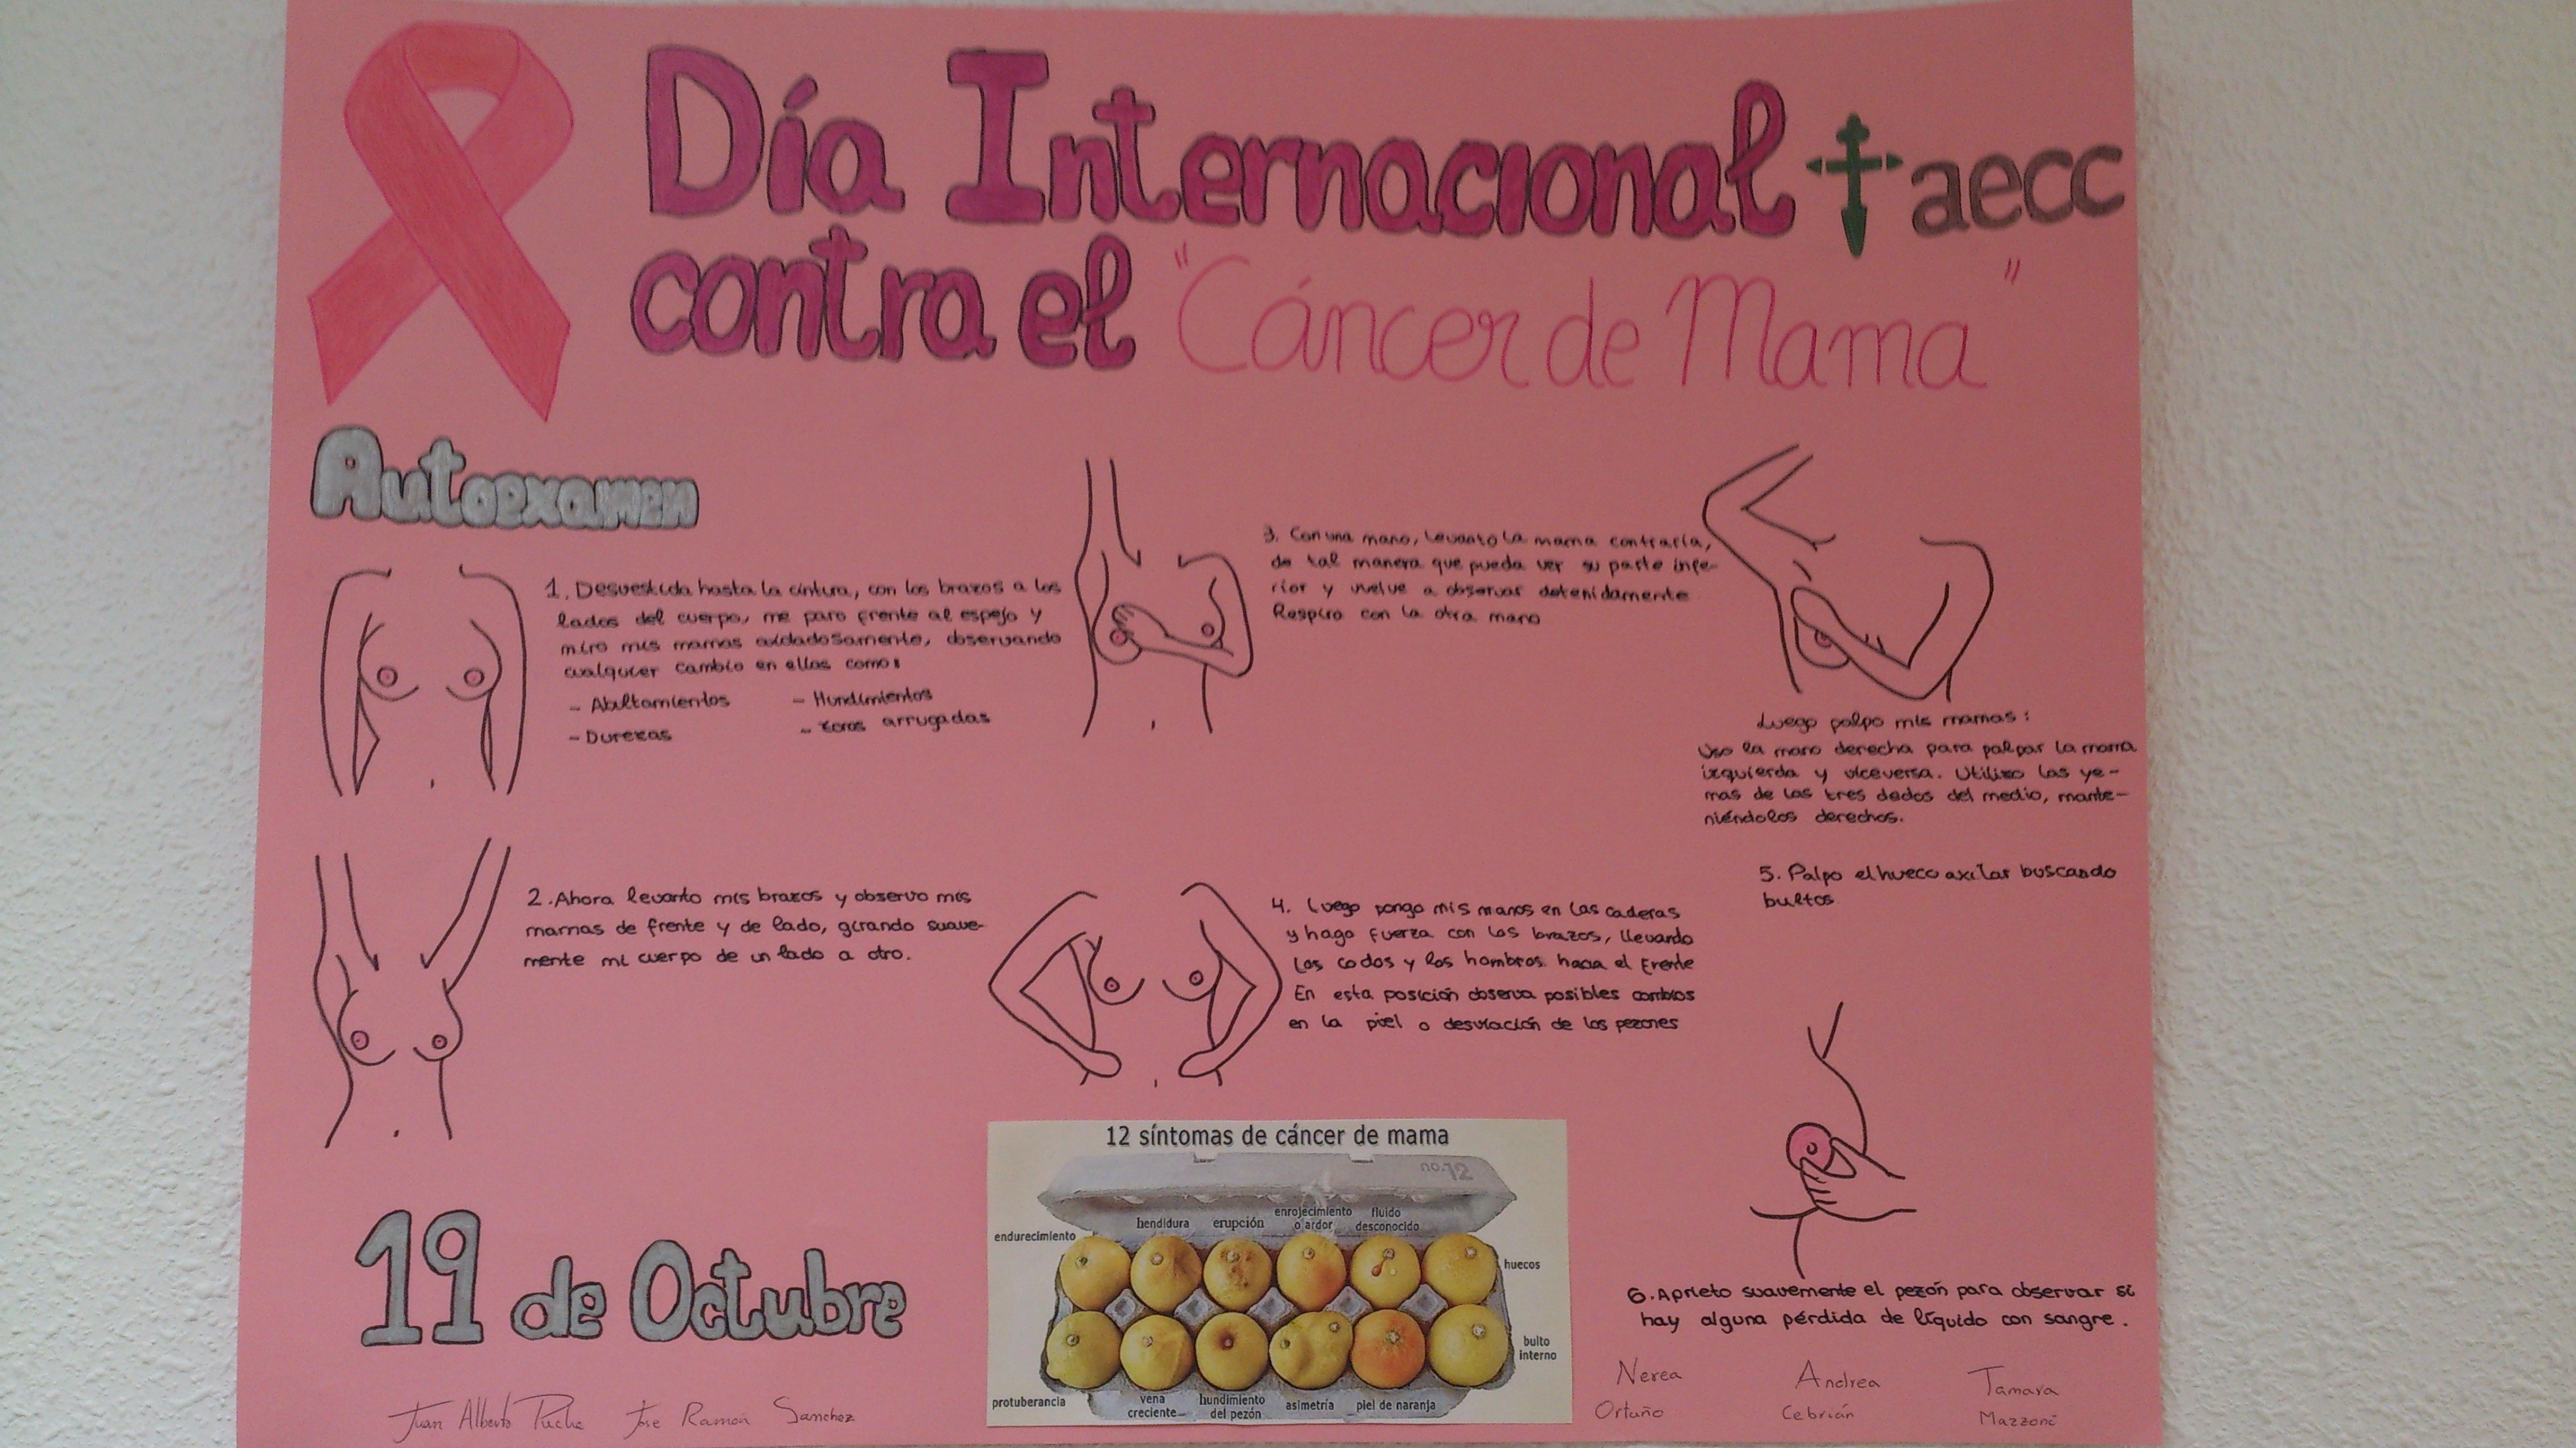 Día Internacional aecc
contra el "Cáncer de Mama"
Autoexamen
1. Desvestida hasta la cintura, con los brazos a los
lados del cuerpo, me paro frente al espejo y
miro mis mamas cuidadosamente, observando
cualquier cambio en ellas como:
- Abultamientos - Hundimientos
- Durezas - zonas arrugadas
2. Ahora levanto mis brazos y observo mis
mamas de frente y de lado, girando suave-
mente mi cuerpo de un lado a otro.
3. Con una mano, levanto la mama contraria,
de tal manera que pueda ver su parte infe-
rior y vuelve a observar detenidamente
Respiro con la otra mano
4. Luego pongo mis manos en las caderas
y hago fuerza con los brazos, llevando
los codos y los hombros hacia el frente
En esta posición observa posibles cambios
en la piel o desviación de los pezones
Luego palpo mis mamas:
Uso la mano derecha para palpar la mama
izquierda y viceversa. Utilizo las ye-
mas de los tres dedos del medio, mante-
niéndolos derechos.
5. Palpo el hueco axilar buscando
bultos
6. Aprieto suavemente el pezón para observar si
hay alguna pérdida de líquido con sangre.
19 de Octubre
12 síntomas de cáncer de mama
no.12
endurecimiento
hendidura
erupción
enrojecimiento
o ardor
fluido
desconocido
huecos
bulto
interno
protuberancia
vena
creciente
hundimiento
del pezón
asimetría
piel de naranja
Juan Alberto Puche Jose Ramón Sanchez
Nerea
Ortuño
Andrea
Cebrián
Tamara
Mazzoni